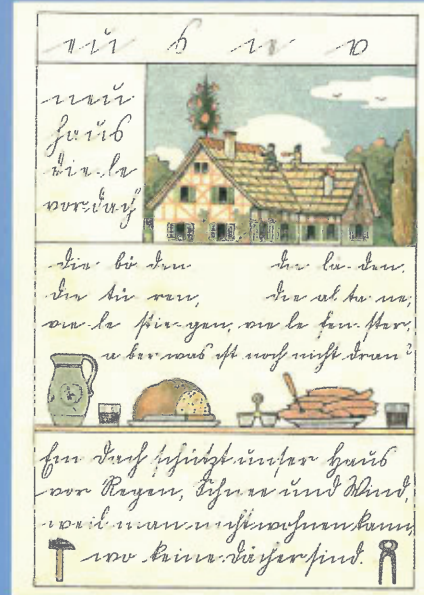 neu
haus
vie-le
vor-dach
die bö-den die la-den,
die tü-ren, die al-ta-ne,
vie-le stie-gen, vie-le fen-ster,
a-ber was ist noch nicht dran?
Ein Dach schützt unser Haus
vor Regen, Schnee und Wind,
weil man nicht wohnen kann,
wo keine Dächer sind.